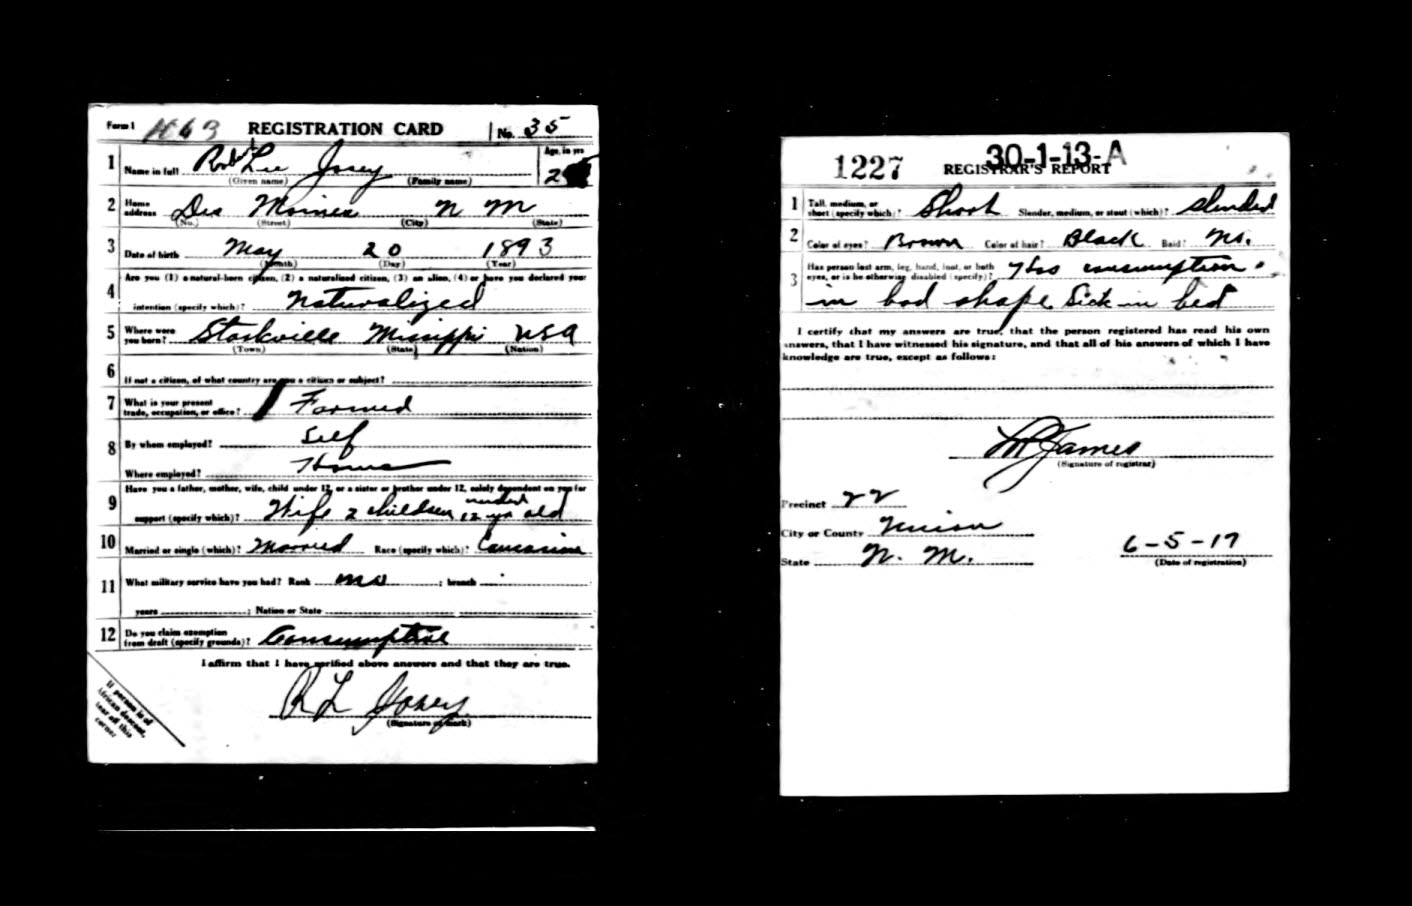 Form 1 REGISTRATION CARD No. 35
1 Name in full Robert Lee Josey Age, in yrs
(Given name) (Family name) 2
2 Home address Des Moines N M
(No.) (Street) (City) (State)
3 Date of birth May 20 1893
(Month) (Day) (Year)
4 Are you (1) a natural-born citizen, (2) a naturalized citizen, (3) an alien, (4) or have you declared your
intention (specify which)? Naturalized
5 Where were you born? Starkville Missippi USA
(Town) (State) (Nation)
6 If not a citizen, of what country are you a citizen or subject?
7 What is your present trade, occupation, or office? Farmed
8 By whom employed? Self
Where employed? Home
9 Have you a father, mother, wife, child under 12, or a sister or brother under 12, solely dependent on you for
support (specify which)? Wife 2 children under 12 yr old
10 Married or single (which)? Married Race (specify which)? Caucasian
11 What military service have you had? Rank no ; branch
years ; Nation or State
12 Do you claim exemption from draft (specify grounds)? Consumptive
I affirm that I have verified above answers and that they are true.
R L Josey
(Signature or mark)
If person is of
African descent,
tear off this
corner
1227 30-1-13-A
REGISTRAR'S REPORT
1 Tall, medium, or short (specify which)? Short Slender, medium, or stout (which)? slender
2 Color of eyes? Brown Color of hair? Black Bald? No.
3 Has person lost arm, leg, hand, foot, or both
eyes, or is he otherwise disabled (specify)? Has consumption
in bad shape Sick in bed
I certify that my answers are true, that the person registered has read his own
answers, that I have witnessed his signature, and that all of his answers of which I have
knowledge are true, except as follows:
James
(Signature of registrar)
Precinct 22
City or County Union
State N. M. 6-5-17
(Date of registration)